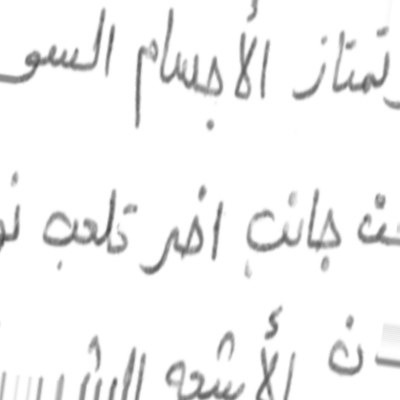 وتمتاز الأجسام السو
جانب اخر تلعب نو
ن الأشعه الشـ